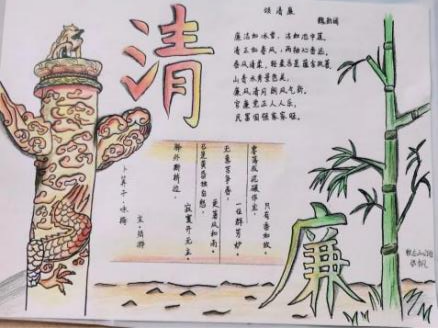 清
廉
颂清廉
廉洁如冰雪，洁如池中莲。
清正如春风，两袖心香远。
山青水秀景色美，
廉风清月朗风气新，
官廉党正人人乐，
民富国强家家暖。
卜算子·咏梅
宋·陆游
驿外断桥边，
寂寞开无主。
已是黄昏独自愁，
更著风和雨。
无意苦争春，
一任群芳妒。
零落成泥碾作尘，
只有香如故。